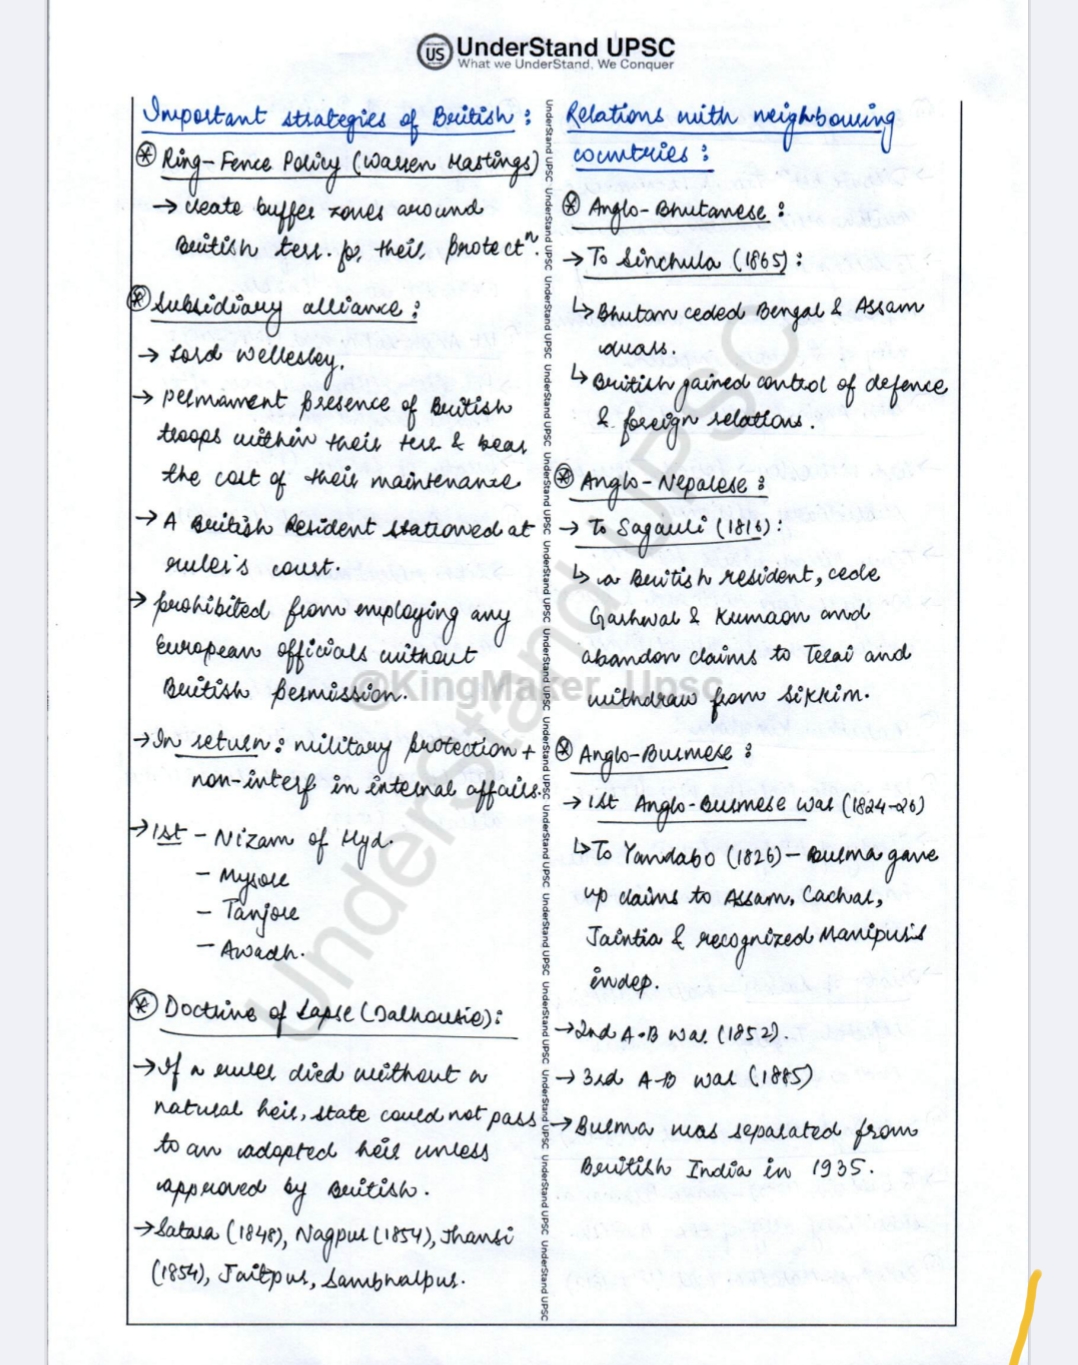 UnderStand UPSC
What we UnderStand, We Conquer
Important strategies of British :
* Ring-Fence Policy (Warren Hastings)
→ create buffer zones around
British terr. for their protectⁿ.
* Subsidiary alliance :
→ Lord Wellesley.
→ permanent presence of British
troops within their terr & bear
the cost of their maintenance
→ A British Resident stationed at
ruler's court.
→ prohibited from employing any
European officials without
British permission.
→ In return : military protection +
non-interf in internal affairs.
→ 1st - Nizam of Hyd.
- Mysore
- Tanjore
- Awadh.
* Doctrine of Lapse (Dalhousie) :
→ If a ruler died without a
natural heir, state could not pass
to an adopted heir unless
approved by British.
→ Satara (1848), Nagpur (1854), Jhansi
(1854), Jaitpur, Sambhalpur.
Relations with neighbouring
countries :
* Anglo-Bhutanese :
→ To Sinchula (1865) :
↳ Bhutan ceded Bengal & Assam
duars.
↳ British gained control of defence
& foreign relations.
* Anglo-Nepalese :
→ To Sagauli (1816) :
↳ a British resident, cede
Garhwal & Kumaon and
abandon claims to Terai and
withdraw from Sikkim.
* Anglo-Burmese :
→ 1st Anglo-Burmese War (1824-26)
↳ To Yandabo (1826) - Burma gave
up claims to Assam, Cachar,
Jaintia & recognized Manipur's
indep.
→ 2nd A-B War (1852).
→ 3rd A-B War (1885)
→ Burma was separated from
British India in 1935.
UnderStand UPSC
@KingMaker_Upsc
UnderStand UPSC UnderStand UPSC UnderStand UPSC UnderStand UPSC UnderStand UPSC UnderStand UPSC UnderStand UPSC UnderStand UPSC UnderStand UPSC UnderStand UPSC UnderStand UPSC UnderStand UPSC UnderStand UPSC UnderStand UPSC